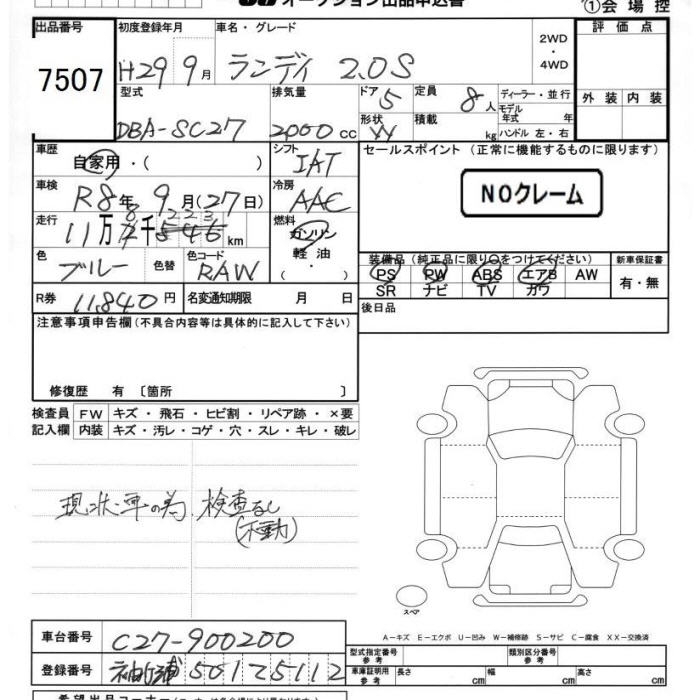 オークション出品申込書
①会場控
出品番号 初度登録年月 車名・グレード 2WD・4WD 評価点
7507 H29 9月 ランディ 2.0S
型式 排気量 ドア 5 定員 8人 ディーラー・並行 外装 内装
モデル年式 年
DBA-SC27 2000cc 形状 積載 kg ハンドル 左・右
車歴 自家用・( ) シフト IAT セールスポイント (正常に機能するものに限ります)
車検 R8年9月(27日) 冷房 AAC NOクレーム
走行 11万 8千223 km 燃料 ガソリン 軽油・( )
色 ブルー 色替 色コード RAW
装備品 (純正品に限り○をつけてください) 新車保証書
PS PW ABS エアB AW 有・無
SR ナビ TV カワ
R券 11,840円 名変通知期限 月 日 後日品
注意事項申告欄 (不具合内容等は具体的に記入して下さい)
修復歴 有 〔箇所 〕
検査員 FW キズ・飛石・ヒビ割・リペア跡・×要
記入欄 内装 キズ・汚レ・コゲ・穴・スレ・キレ・破レ
現状車の為、検査なし
(不動)
スペア
A-キズ E-エクボ U-凹み W-補修跡 S-サビ C-腐食 XX-交換済
車台番号 C27-900200
型式指定番号 参考 類別区分番号 参考
登録番号 袖ヶ浦 501 せ 5112
車庫証明用 参考 長さ cm 幅 cm 高さ cm